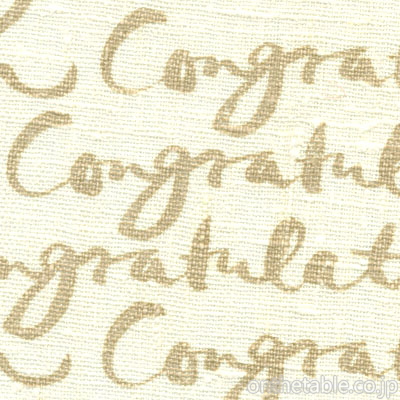 Congrat
Congratul
ngratulat
Congrat
onthetable.co.jp